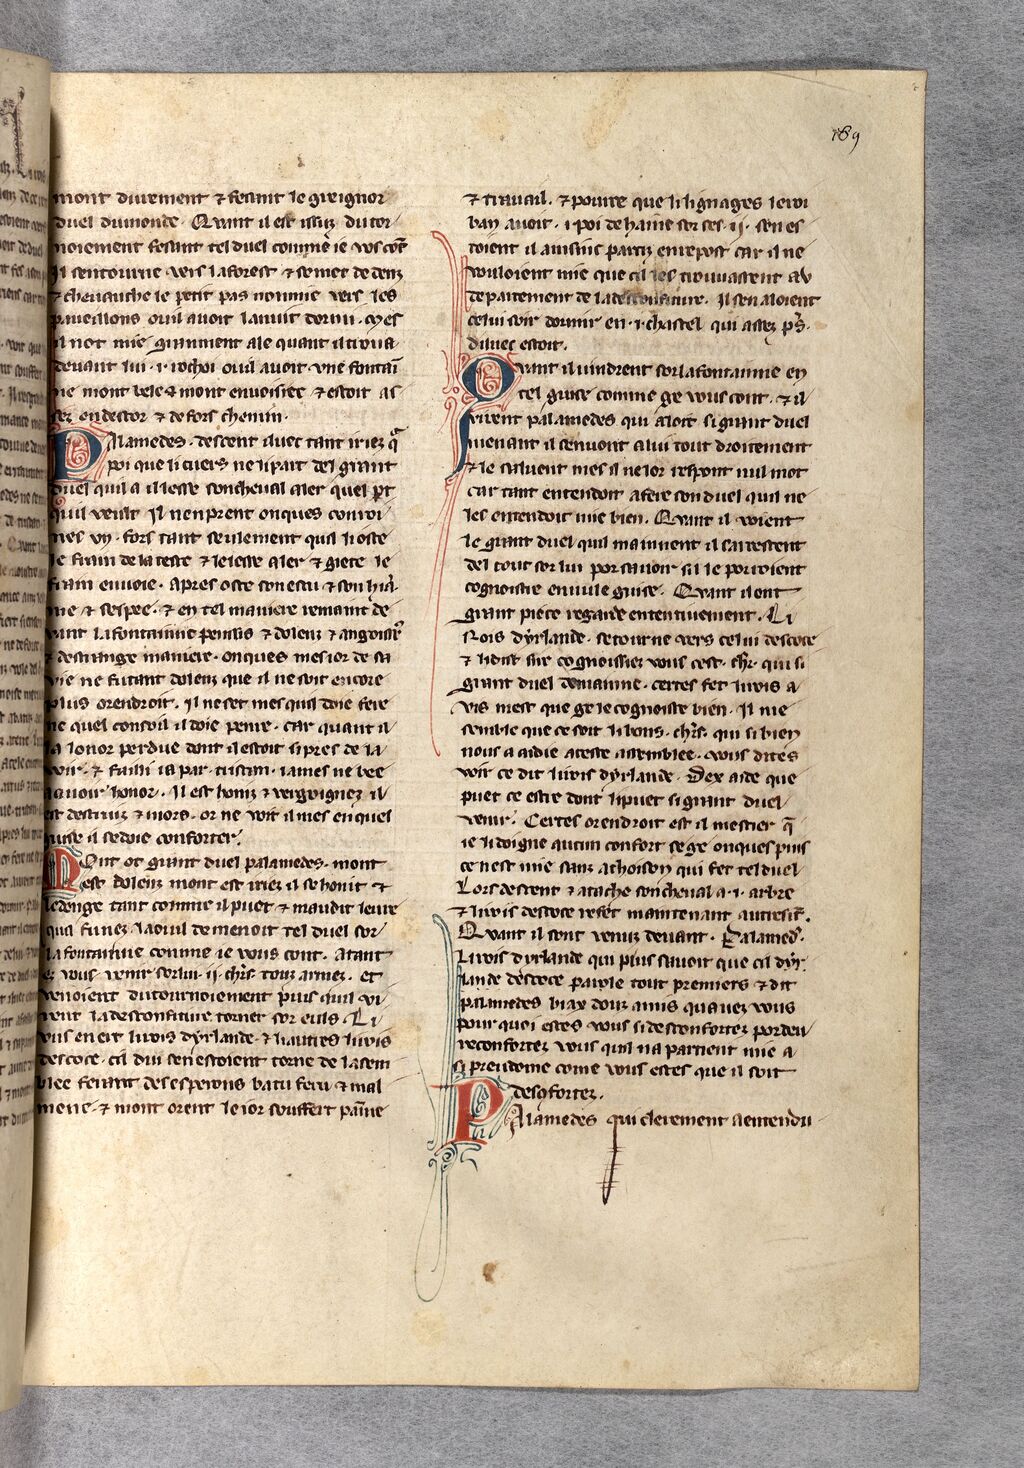 189
mont durement & fesant le greignor
duel du monde. Quant il est issuz du tor-
noiement fesant tel duel comme ie vos cont
il sentourne vers la forest & se met dedenz
& cheuauche le petit pas non mie vers les
paueillons ou il auoit la nuit dormi. Cy es
il not mie granment ale quant il troua
deuant lui .i. rochoi ou il auoit vne fontai
ne mont bele & mont enuoisiee & estoit as
sez en destor & de fors chemin.
Palamedes descent iluec tant iriez q̃
poi que li cuers ne li part del grant
duel quil a il lesse son cheual aler quel pt
quil veult Il nen prent onques conroi
nes vn. fors tant seulement quil li oste
le frain de la teste & le lesse aler & giete le
frain en voie. Apres oste son escu & son hia
me & sespee. & en tel maniere remaint de
uant la fontainne penssis & dolenz & angoisse
& destrange maniere. onques mes ior de sa
vie ne fu tant dolenz que il ne soit encore
plus orendroit. Il ne set mes quil doie fere
ne quel conseil il doie penre. car quant il
a lonor perdue dont il estoit si pres de la
voir. & failli i a par tristan. iames ne bee
a auoir honor. Il est honiz & vergoignez il
est destruiz & mors. or ne voit il mes en quel
guise il se doie conforter.
Mout ot grant duel palamedes. mont
est dolenz mont est iriez il se honit &
ledenge tant comme il puet & maudit leure
quil fu nez la ou il demenoit tel duel sor
la fontainne comme ie vous cont. Atant
ez vous venir sor lui .ii. chrs touz armez. et
venoient du tornoiement puis quil vi
rent la desconfiture torner sor euls. Li
vns en ert li rois dyrlande. & li autres li rois
descoce. cil dui sen estoient torne de lasem
blee ferant des esperons batu feru & mal
mene. & mont orent le ior souffert paine
& trauail. & pource que li lignages le roi
bay auoit .i. poi de haine sor ces .ii. sen es
toient il ainsins partiz en repost car il ne
vouloient mie que cil les trouuassent au
departement de la desconfiture. Il sen aloient
celui soir dormir en .i. chastel qui assez ps
diluec estoit.
Quant il vindrent sor la fontainne en
tel guise comme ge vous cont. & il
virent palamedes qui aloit si grant duel
menant il sen vont a lui tout droitement
& le saluent mes il ne lor respont nul mot
car tant entendoit a fere son duel quil ne
les entendoit mie bien. Quant il voient
le grant duel quil mainnent il sarrestent
del tout sor lui por sauoir sil le porroient
cognoistre en nule guise. Quant il ont
grant piece regarde ententiuement. Li
Rois dyrlande. se torne vers celui descoce
& li dist sire cognoissiez vous cest. chr. qui si
grant duel demainne. certes fet li rois a
vis mest que ge le cognoisse bien. Il me
semble que ce soit li bons. chrs. qui si bien
nous a aidie a ceste assemblee. vous dites
voir ce dit li rois dyrlande. Dex aide que
puet ce estre dont li puet si grant duel
venir. Certes orendroit est il mestier q̃
ie li doigne aucun confort se ge onques puis
ce nest mie sanz achoison qui fet tel duel
Lors descent & atache son cheual a .i. arbre
& li rois descoce refet maintenant autresit.
Quant il sont venuz deuant. Palamed.
Li rois dyrlande qui plus sauoit que cil dyr
lande descoce parole tout premiers & dit
palamedes biax douz amis quauez vous
pour quoi estes vous si desconfortez por deu
reconfortez vous quil na partient mie a
si preudome come vous estes que il soit
desconfortez.
Palamedes qui clerement a entendu